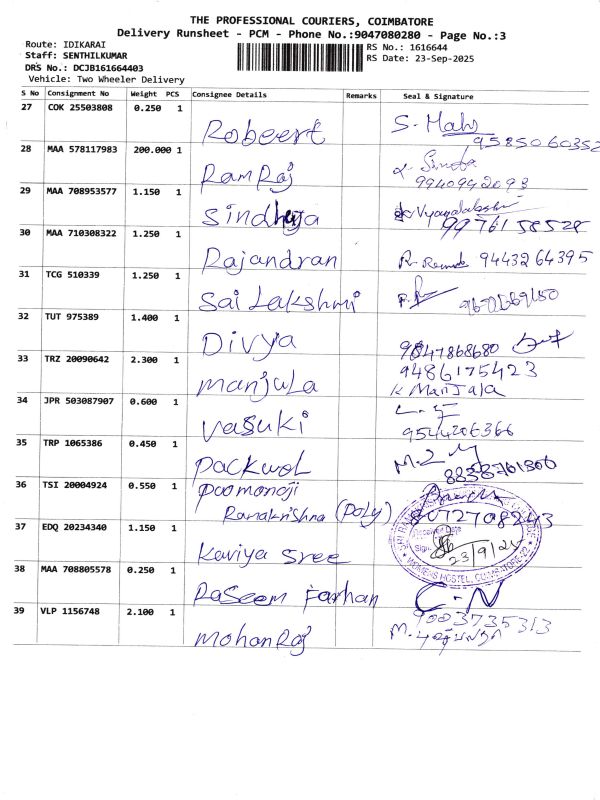 THE PROFESSIONAL COURIERS, COIMBATORE
Delivery Runsheet - PCM - Phone No.:9047080280 - Page No.:3
Route: IDIKARAI
RS No.: 1616644
Staff: SENTHILKUMAR
RS Date: 23-Sep-2025
DRS No.: DCJB161664403
Vehicle: Two Wheeler Delivery
S No Consignment No Weight PCS Consignee Details Remarks Seal & Signature
27 COK 25503808 0.250 1 Robeert S. Mah
9585060352
28 MAA 578117983 200.000 1 RamRaj
9940942093
29 MAA 708953577 1.150 1 Sindhuja
9976158528
30 MAA 710308322 1.250 1 Rajandran 9443264395
31 TCG 510339 1.250 1 Sai Lakshmi
32 TUT 975389 1.400 1 Divya 9847868680
33 TRZ 20090642 2.300 1 manjula 9486175423
K Manjala
34 JPR 503087907 0.600 1 vasuki
9544206366
35 TRP 1065386 0.450 1 packwol
36 TSI 20004924 0.550 1 poomonoji
Ramakrishna (poly) 8072708243
37 EDQ 20234340 1.150 1 Kaviya sree
Received Date
Sign
23/9/25
WOMENS HOSTEL, COIMBATORE-22
38 MAA 708805578 0.250 1 Raseem Farhan C-N
39 VLP 1156748 2.100 1 mohanRaj 9003735313